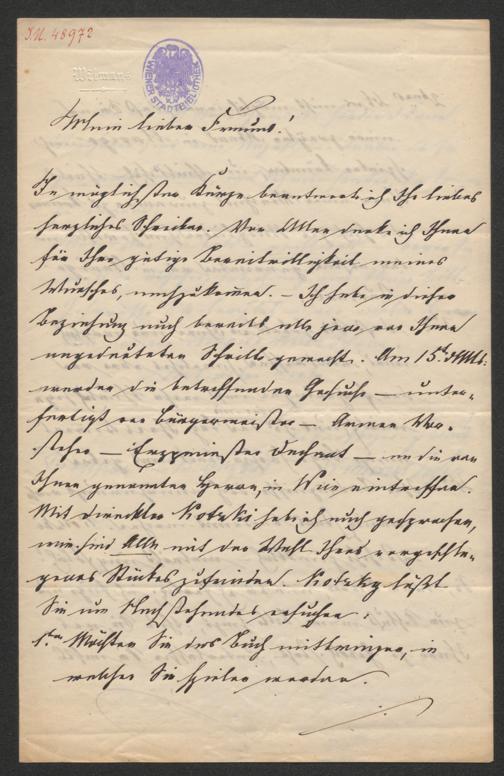 J.N. 48972
WIENER STADTBIBLIOTHEK
Mein lieber Freund!
In möglichster Kürze beantworte ich Ihr liebes
herzliches Schreiben. Vor Allem danke ich Ihnen
für Ihre gütige Bereitwilligkeit meinem
Wunsche, nachzukommen. – Ich habe in dieser
Beziehung auch bereits alle jene von Ihnen
angedeuteten Schritte gemacht. Am 15t
werden die betreffenden Gesuche – unter-
fertigt von Bürgermeister – Armen Vor-
steher – – an die von
Ihnen genannten Herren, in Wien eintreffen.
Mit Direktor Kotzky habe ich auch gesprochen,
wir sind Alle mit der Wahl Ihres vorgeschla-
genen Stückes zufrieden. Kotzky läßt
Sie um Nachstehendes ersuchen:
1tens Möchten Sie das Buch mitbringen, in
welchem Sie spielen werden.